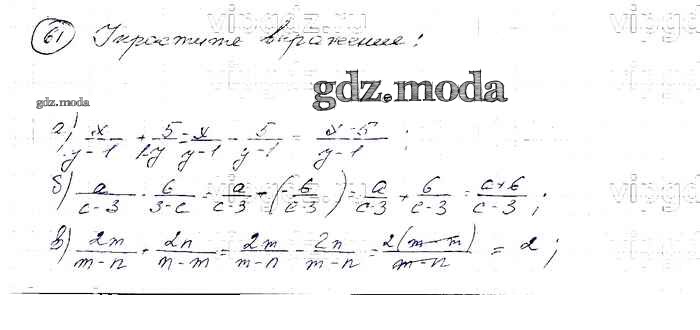 vipgdz.ru
61 Упростите выражение:
gdz.moda
gdz.moda
а) x/(y-1) + 5/(1-y) = x/(y-1) - 5/(y-1) = (x-5)/(y-1);
б) a/(c-3) - 6/(3-c) = a/(c-3) - (-6/(c-3)) = a/(c-3) + 6/(c-3) = (a+6)/(c-3);
в) 2m/(m-n) + 2n/(n-m) = 2m/(m-n) - 2n/(m-n) = 2(m-n)/(m-n) = 2;